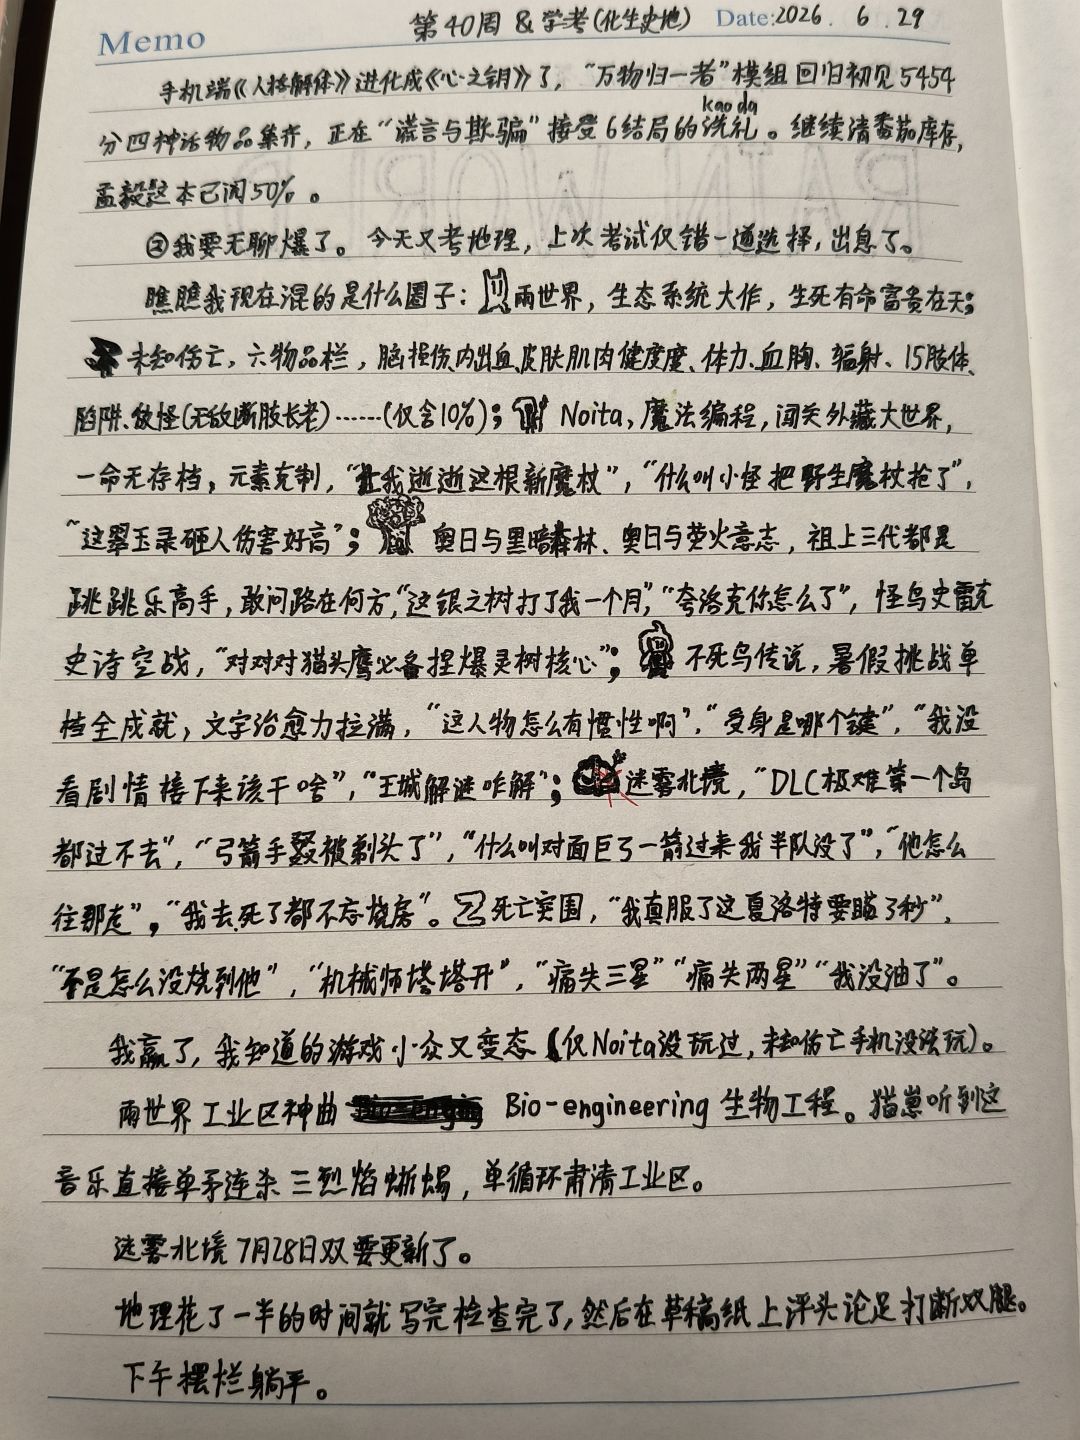 Memo 第40周 & 学考(化生史地) Date:2026. 6. 29
手机端《人格解体》进化成《心之钥》了，“万物归一者”模组回归初见5454
kao da
分四神话物品集齐，正在“谎言与欺骗”接受6结局的洗礼。继续清番茄库存，
孟毅这本已阅50%。
②我要无聊爆了。今天又考地理，上次考试仅错一道选择，出息了。
瞧瞧我现在混的是什么圈子：雨世界，生态系统大作，生死有命富贵在天；
未知伤亡，六物品栏，脑损伤、内出血、皮肤肌肉健康度、体力、血胸、辐射、15肢体、
陷阱、敌怪(无敌断肢长老)……(仅含10%)；Noita，魔法编程，闯关外藏大世界，
一命无存档，元素克制，“让我逝逝这根新魔杖”，“什么叫小怪把野生魔杖抢了”，
“这翠玉录砸人伤害好高”；奥日与黑暗森林、奥日与萤火意志，祖上三代都是
跳跳乐高手，敢问路在何方，“这银之树打了我一个月”，“夸洛克你怎么了”，怪鸟史雷克
史诗空战，“对对对猫头鹰必备捏爆灵树核心”；不死鸟传说，暑假挑战单
档全成就，文字治愈力拉满，“这人物怎么有惯性啊”，“受身是哪个键”，“我没
看剧情接下来该干啥”，“王城解谜咋解”；迷雾北境，“DLC极难第一个岛
都过不去”，“弓箭手又被剃头了”，“什么叫对面巨弓一箭过来我半队没了”，“他怎么
往那走”，“我去死了都不忘烧房”。死亡突围，“我真服了这夏洛特要瞄3秒”，
“不是怎么没烧到他”，“机械师塔塔开”，“痛失三星”“痛失两星”“我没油了”。
我赢了，我知道的游戏小众又变态(仅Noita没玩过，未知伤亡手机没法玩)。
雨世界工业区神曲 Bio-engineering 生物工程。猫崽听到这
音乐直接单矛连杀三烈焰蜥蜴，单循环肃清工业区。
迷雾北境7月28日双要更新了。
地理花了一半的时间就写完检查完了，然后在草稿纸上评头论足打断双腿。
下午摆烂躺平。